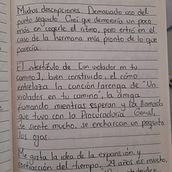 Muchas descripciones. Demasiado uso del
punto seguido. Creí que demoraría un poco
más en cogerle el ritmo, pero entré en el
caso de la hermana más pronto de lo que
parecía.
El interludio de [un velador en tu
camino], bien construido, el cómo
entrelaza la canción/arenga de "Un
violador en tu camino", la droga
fumando mientras esperan y la llamada
que tuvo con la Procuradoría General,
se siente mucho, se encharcan un poquito
los ojos.
Me gusta la idea de la expansión y
del tiempo. 21 años es mucho,